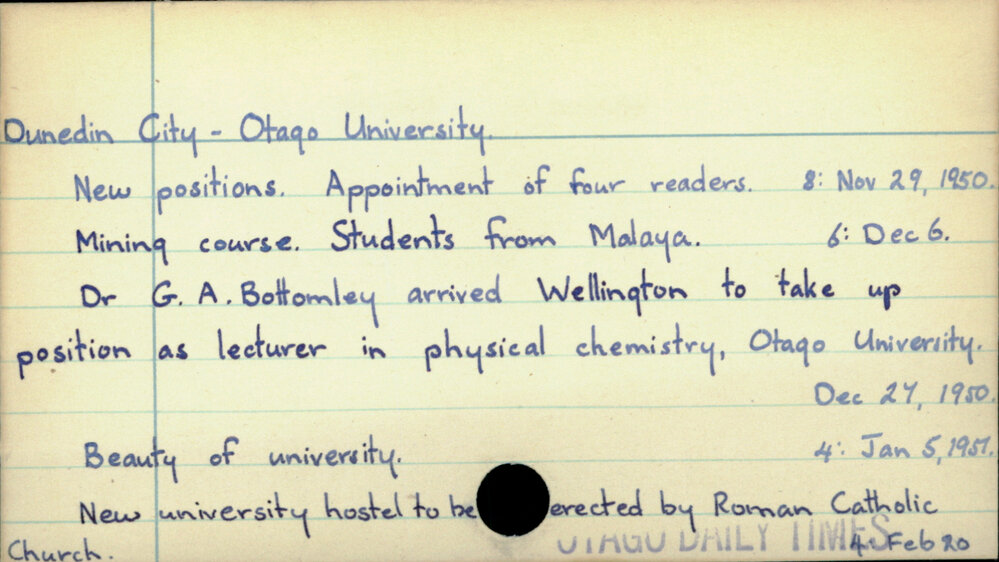 Dunedin City - Otago University.
New positions. Appointment of four readers. 8: Nov 29, 1950.
Mining course. Students from Malaya. 6: Dec 6.
Dr G. A. Bottomley arrived Wellington to take up
position as lecturer in physical chemistry, Otago University.
Dec 27, 1950.
Beauty of university. 4: Jan 5, 1951.
New university hostel to be erected by Roman Catholic
Church. OTAGO DAILY TIMES 4: Feb 20